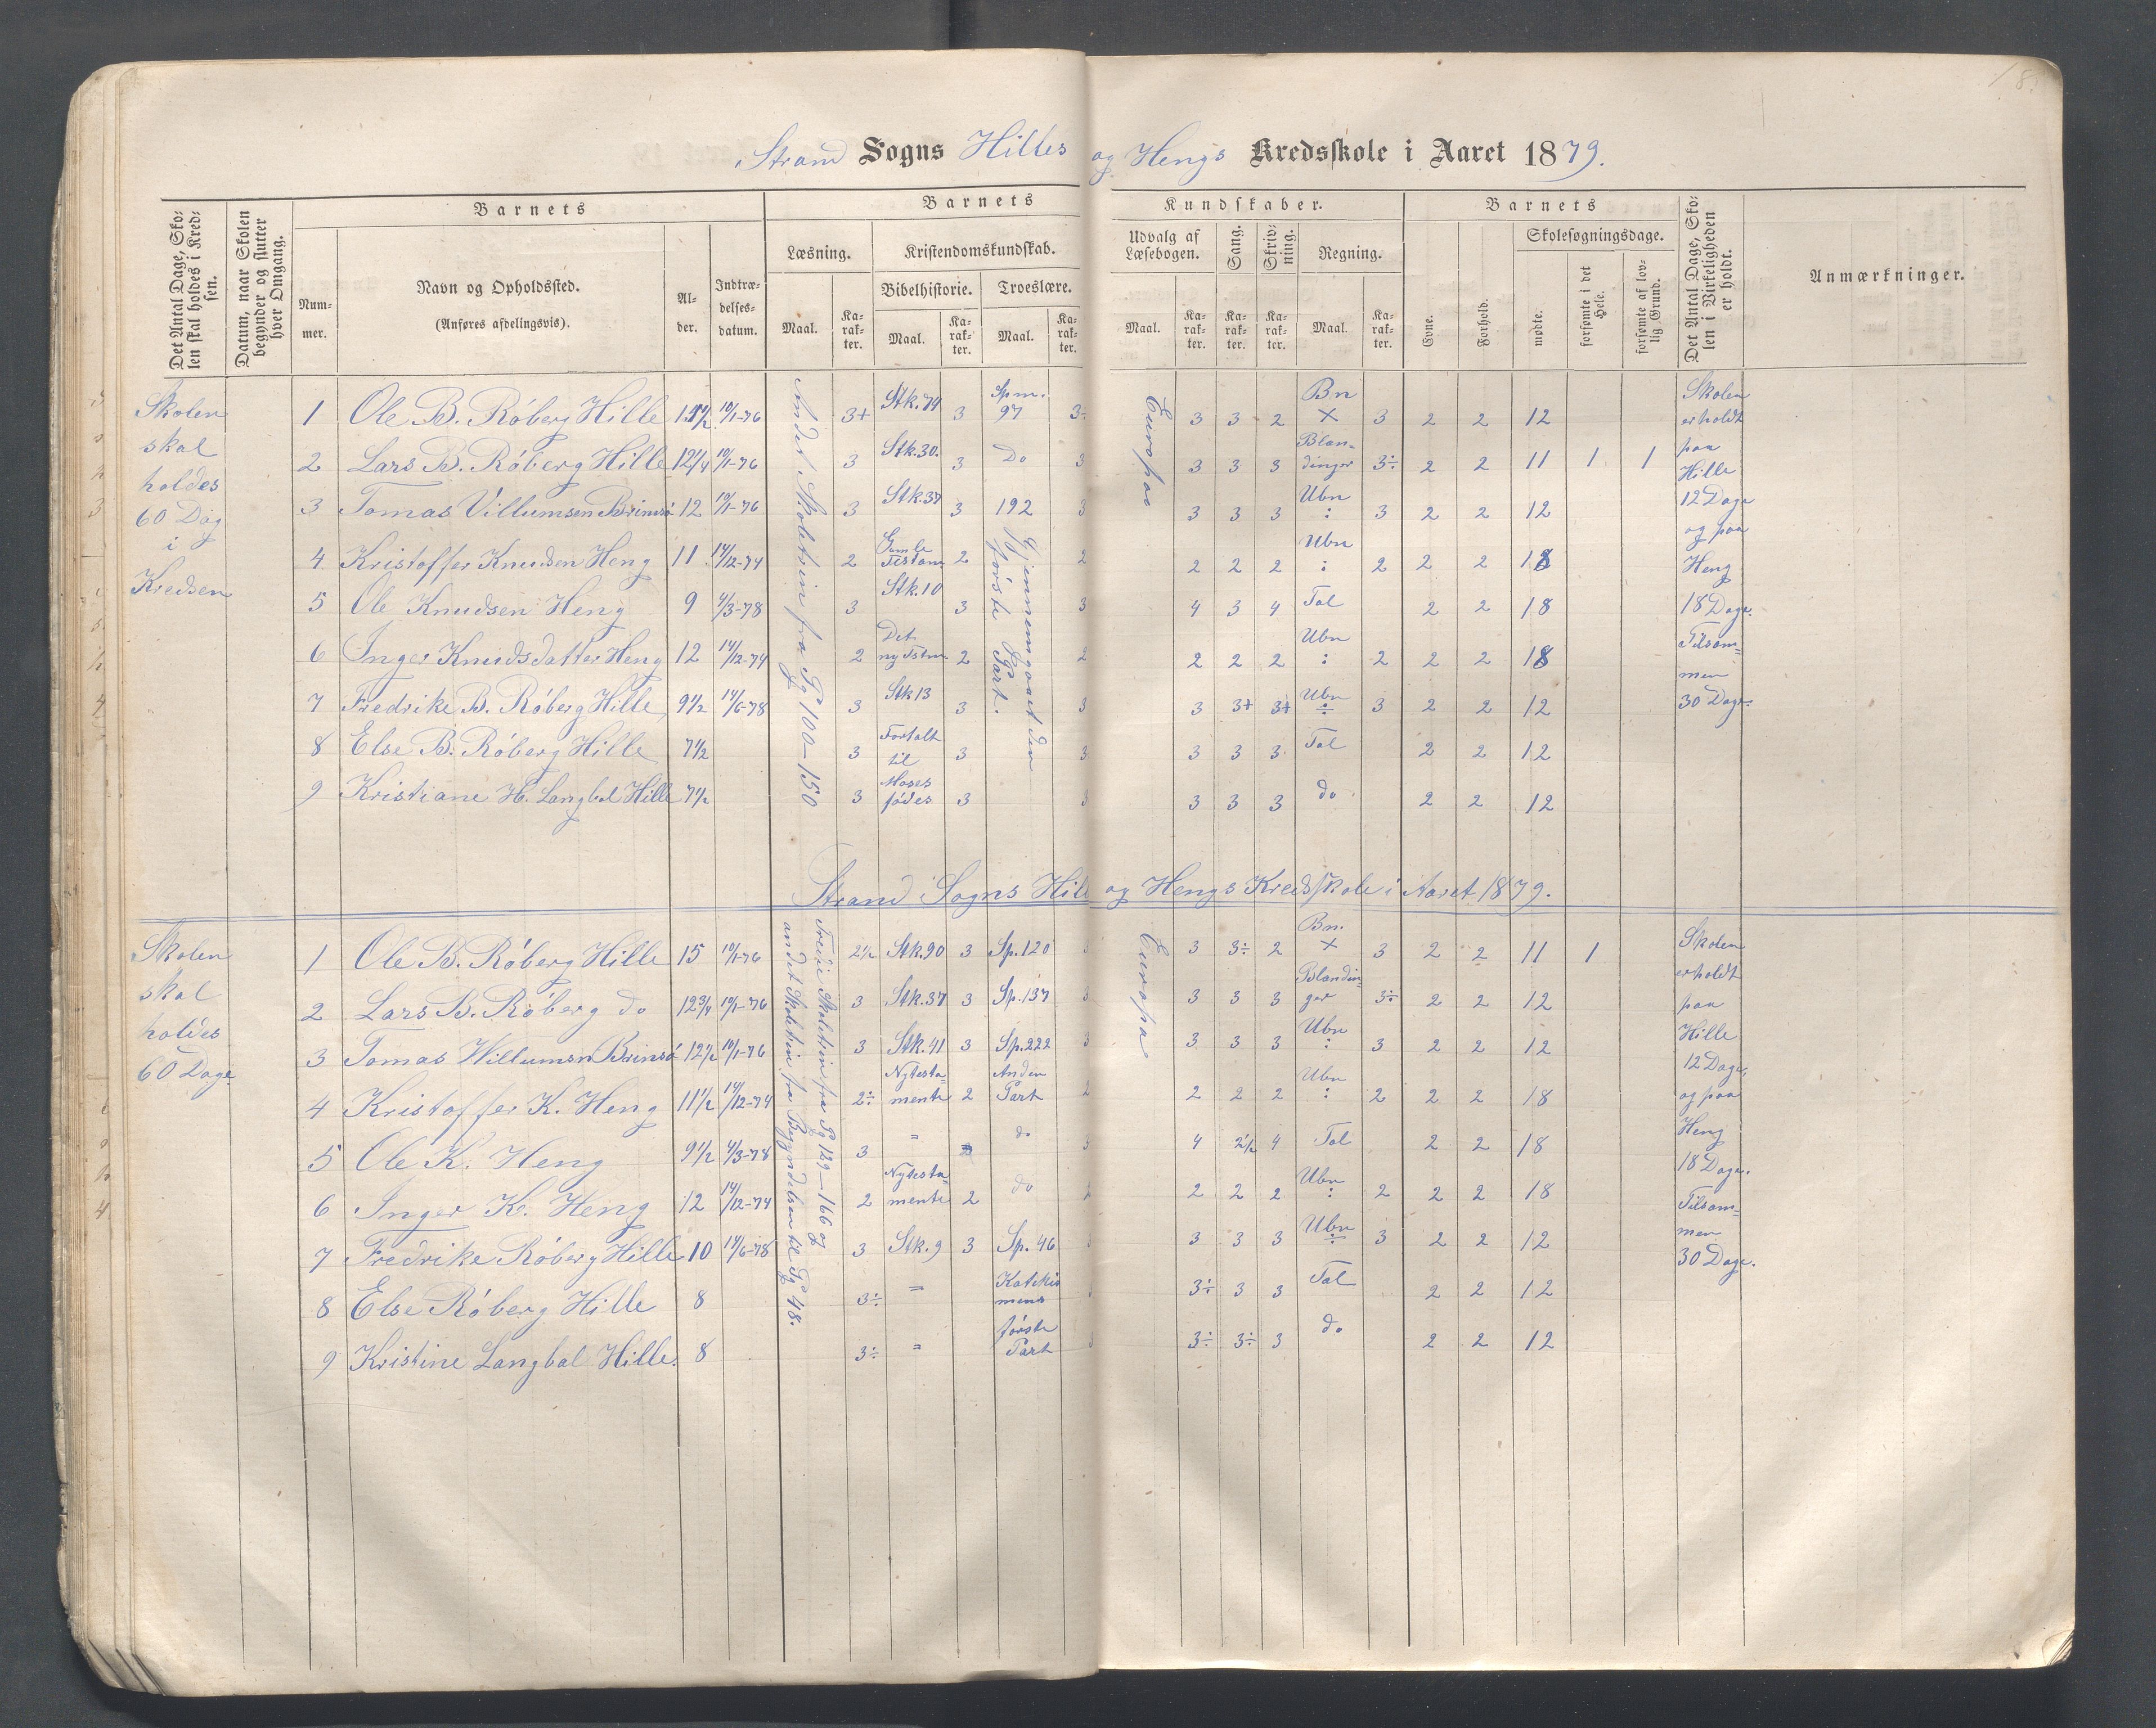 Strand Sogns Hilles og Hengs Kredsskole i Aaret 1879.
Det Antal Dage, Skolen skal holdes i Kredsen.
Datum, naar Skolen begynder og slutter hver Omgang.
Barnets
Nummer.
Navn og Opholdssted.
(Anføres afdelingsvis).
Alder.
Indtrædelsesdatum.
Barnets Kundskaber.
Læsning.
Maal. Karakter.
Kristendomskundskab.
Bibelhistorie.
Maal. Karakter.
Troeslære.
Maal. Karakter.
Udvalg af Læsebogen.
Maal. Karakter.
Sang. Karakter.
Skrivning. Karakter.
Regning.
Maal. Karakter.
Barnets
Evne.
Forhold.
Skolesøgningsdage.
mødte.
forsømte i det Hele.
forsømte af lovlig Grund.
Det Antal Dage, Skolen i Virkeligheden er holdt.
Anmærkninger.
Skolen
skal
holdes
60 Dag
i
Kredsen
Andet Skoletrin fra Pg 100-150
Gjennemgaaet den første Part.
Europas
1 Ole B. Röberg Hille 10/1-76 3+ Stk. 74 3 Spm. 97 3÷ 3 3 2 Bn × 3 2 2 12
2 Lars B. Röberg Hille 12 1/4 10/1-76 3 Stk. 30. 3 Do 3 3 3 3 Blandinger 3÷ 2 2 11 1 1
3 Tomas Villumsen Brimsö 12 10/1-76 3 Stk. 37 3 192 3 3 3 3 Ubn : 3 2 2 12
4 Kristoffer Knudsen Heng 11 14/12-74 2 Gamle Testam 2 2 2 2 2 Ubn : 2 2 2 18
5 Ole Knudsen Heng 9 4/3-78 3 Stk. 10 3 3 4 3 4 Tal 2 2 18
6 Inger Knudsdatter Heng 12 14/12-74 2 Det ny Tstm 2 2 2 2 2 Ubn : 2 2 2 18
7 Fredrike B. Röberg Hille 9 1/2 14/6-78 3 Stk 13 3 3 3 3+ 3+ Ubn ÷ 3 2 2 12
8 Else B. Röberg Hille 7 1/2 3 Fortalt til 3 3 3 3 3 Tal 2 2 12
9 Kristiane H. Langbal Hille 7 1/2 3 Moses födes 3 3 3 3 3 do 2 2 12
Skolen
er holdt
paa
Hille
12 Dage
og paa
Heng
18 Dage.
Tilsam=
men
30 Dage.
Strand Sogns Hill og Hengs Kredsskole i Aaret 1879.
Skolen
skal
holdes
60 Dage
Tredie Skoletrin fra Pg 129-166 og
andet Skoletrin fra Begyndelsen til Pg 48.
Europa
1 Ole B. Röberg Hille 15 10/1-76 2 1/2 Stk. 90 3 Sp. 120 3 3÷ 2 Bn. × 3 2 2 11 1
2 Lars B. Röberg do 12 3/4 10/1-76 3 Stk. 37 3 Sp. 137 3 3 3 3 Blandinger 3÷ 2 2 12
3 Tomas Willumsn Brimsö 12 1/2 10/1-76 3 Stk. 41 3 Sp. 222 3 3 3 3 Ubn : 3 2 2 12
4 Kristoffer K. Heng 11 1/2 14/12-74 2÷ Nytesta=mente 2 Anden Part 2 2 2 2 Ubn : 2 2 2 18
5 Ole K. Heng 9 1/2 4/3-78 3 = do 3 4 2 1/2 4 Tal 2 2 18
6 Inger K. Heng 12 14/12-74 2 Nytesta=mente 2 do 2 2 2 2 Ubn : 2 2 2 18
7 Fredrike Röberg Hille 10 14/6-78 3 Stk. 9 3 Sp. 46 3 3 3 Ubn ÷ 3 2 2 12
8 Else Röberg Hille 8 3÷ = Katekismens 3÷ 3 3 Tal 2 2 12
9 Kristine Langbal Hille. 8 3÷ = förste Part 3÷ 3÷ 3 do 2 2 12
Skolen
er holdt
paa
Hille
12 Dage,
og paa
Heng
18 Dage.
Tilsam=
men
30 Dage.